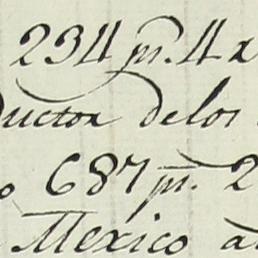 234 p.s 4 r
ductor delos
687 p.s 2
Mexico